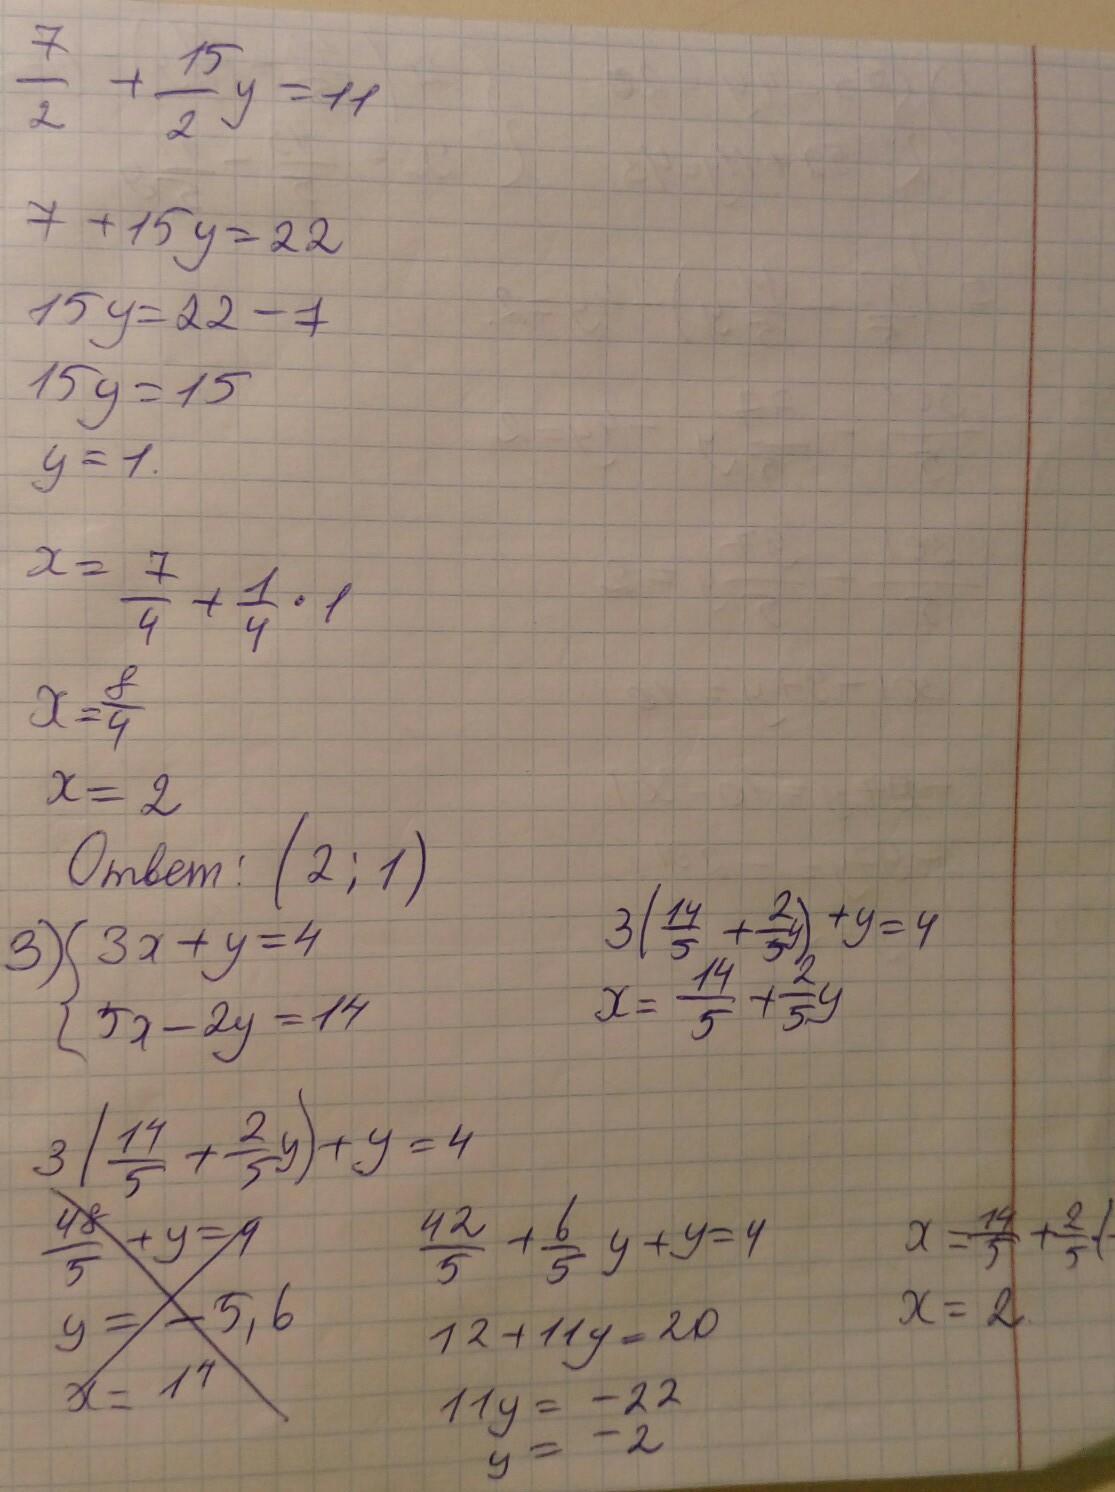 7/2 + 15/2 y = 11
7 + 15y = 22
15y = 22 - 7
15y = 15
y = 1.
x = 7/4 + 1/4 · 1
x = 8/4
x = 2
Ответ: (2; 1)
3) { 3x + y = 4
5x - 2y = 14
3(14/5 + 2/5 y) + y = 4
x = 14/5 + 2/5 y
3(14/5 + 2/5 y) + y = 4
48/5 + y = 4
y = -5,6
x = 14
42/5 + 6/5 y + y = 4
12 + 11y = 20
11y = -22
y = -2
x = 14/5 + 2/5 (-
x = 2.